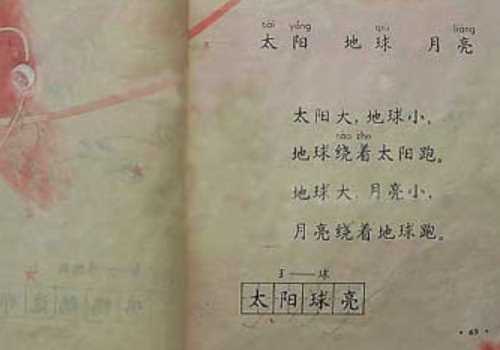 tài yáng qiú liàng
太阳 地球 月亮
太阳大，地球小，
rào zhe
地球绕着太阳跑。
地球大，月亮小，
月亮绕着地球跑。
球
太阳球亮